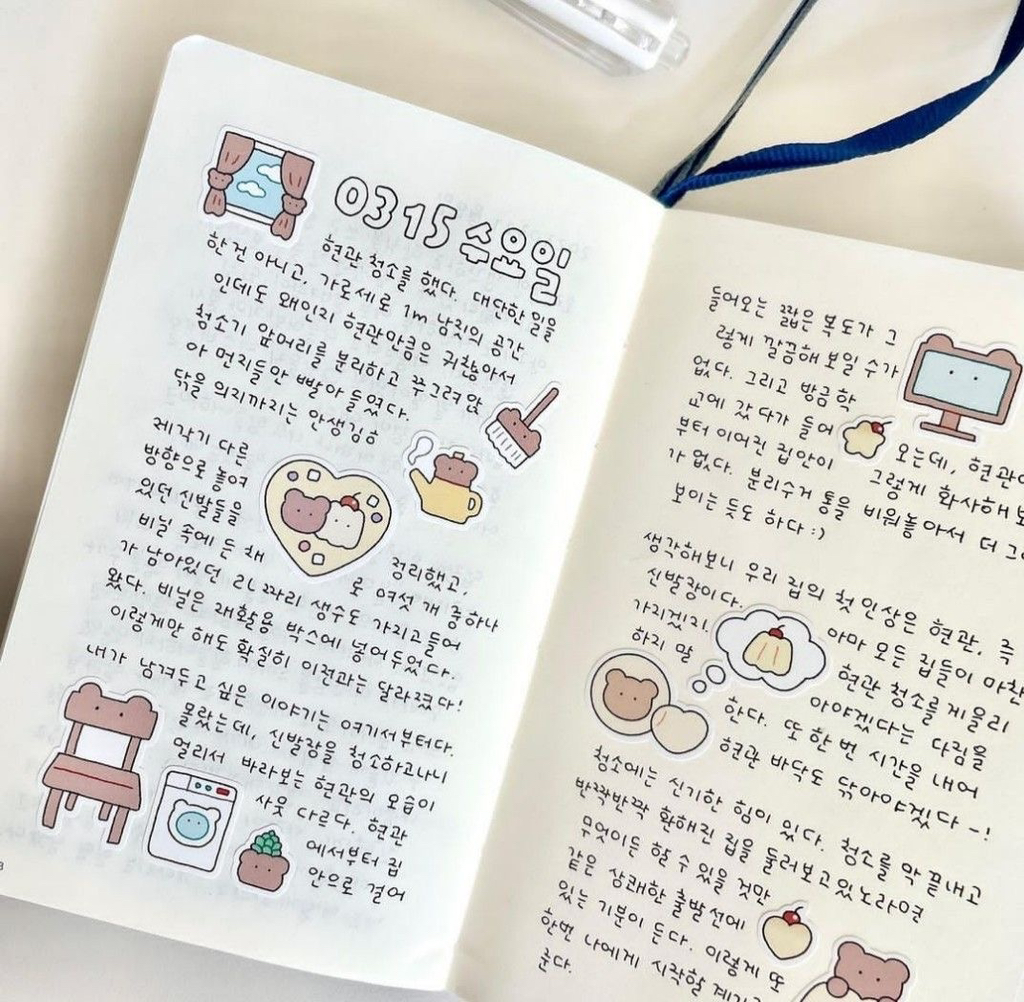 0315 수요일
현관 청소를 했다. 대단한 일을
한 건 아니고, 가로세로 1m 남짓의 공간
인데도 왜인지 현관만큼은 귀찮아서
청소기 앞머리를 분리하고 쭈그려앉
아 먼지들만 빨아 들였다.
닦을 의지까지는 안생김ㅎ
제각기 다른
방향으로 놓여
있던 신발들을 정리했고,
비닐 속에 든 채로 여섯 개 중 하나
가 남아있던 2L 짜리 생수도 가지고 들어
왔다. 비닐은 재활용 박스에 넣어두었다.
이렇게만 해도 확실히 이전과는 달라졌다!
내가 남겨두고 싶은 이야기는 여기서부터다.
몰랐는데, 신발장을 청소하고나니
멀리서 바라보는 현관의 모습이
사뭇 다르다. 현관
에서부터 집
안으로 걸어
들어오는 짧은 복도가 그
렇게 깔끔해 보일 수가
없다. 그리고 방금 학
교에 갔다가 들어오는데, 현관
부터 이어진 집안이 그렇게 화사해
가 없다. 분리수거 통을 비워놓아서 더
보이는 듯도 하다 :)
생각해보니 우리 집의 첫인상은 현관, 즉
신발장이다. 아마 모든 집들이 마찬
가지겠지. 현관 청소를 게을리
하지 말아야겠다는 다짐을
한다. 또 한 번 시간을 내어
현관 바닥도 닦아야겠다-!
청소에는 신기한 힘이 있다. 청소를 막 끝내고
반짝반짝 환해진 집을 둘러보고있노라면
무엇이든 할 수 있을 것만
같은 상쾌한 출발선에
있는 기분이 든다. 이렇게 또
한번 나에게 시작할
준다.